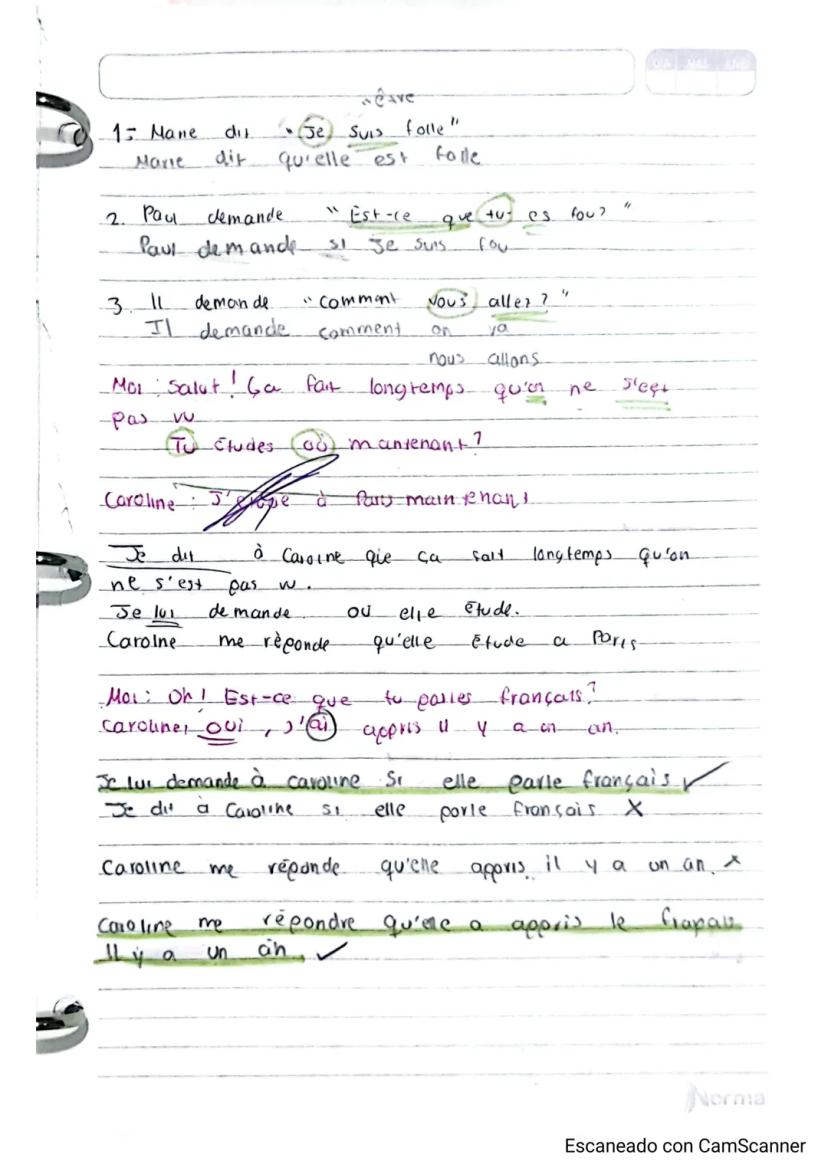 DIA MES AÑO
"être
1- Marie dit "Je suis folle"
Marie dit qu'elle est folle
2. Paul demande "Est-ce que tu es fou?"
Paul demande si Je suis fou
3. Il demande "comment vous allez?"
Il demande comment on va
nous allons
Moi: Salut! Ça fait longtemps qu'on ne s'est
pas vu
Tu études où maintenant?
Caroline: J' à Paris maintenant
Je dit à Caroine qie ça fait longtemps qu'on
ne s'est pas vu.
Je lui demande où elle étude.
Carolne me rèponde qu'elle étude a Paris
Moi: Oh! Est-ce que tu parles français?
Caroline, oui, J'ai appris il y a un an.
Je lui demande à caroline Si elle parle français ✓
Je dit à Caroline si elle parle français X
Caroline me réponde qu'elle appris il y a un an. x
Caroline me répondre qu'elle a appris le
Il y a un an. ✓
Norma
Escaneado con CamScanner